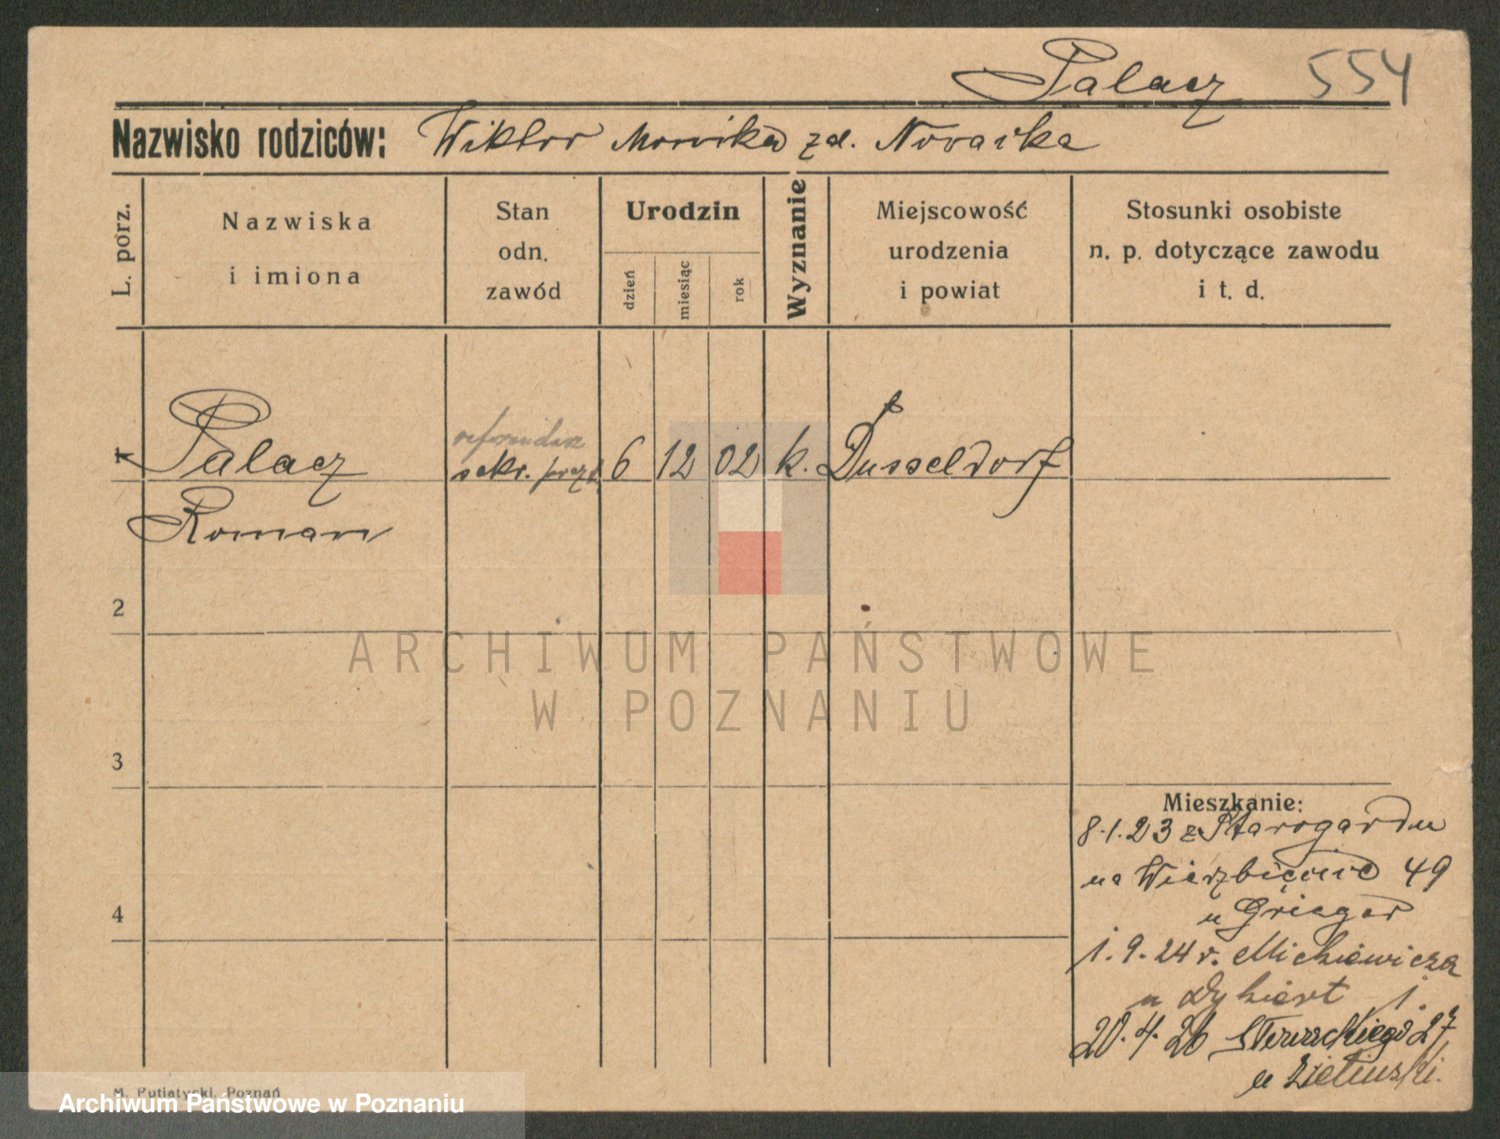 Palacz 554
Nazwisko rodziców: Wiktor zd.
L. porz.
Nazwiska
i imiona
Stan
odn.
zawód
Urodzin
dzień
miesiąc
rok
Wyznanie
Miejscowość
urodzenia
i powiat
Stosunki osobiste
n. p. dotyczące zawodu
i t. d.
referendarz
1 Palacz sekr. 6 12 02 k. Düsseldorf
Roman
2
ARCHIWUM PAŃSTWOWE
W POZNANIU
3
Mieszkanie:
8.1.23 z Starogardu
na 49
u
4
1.9.24 r. Mickiewicza
u
20.4.26 27
u
M. Putiatycki, Poznań
Archiwum Państwowe w Poznaniu